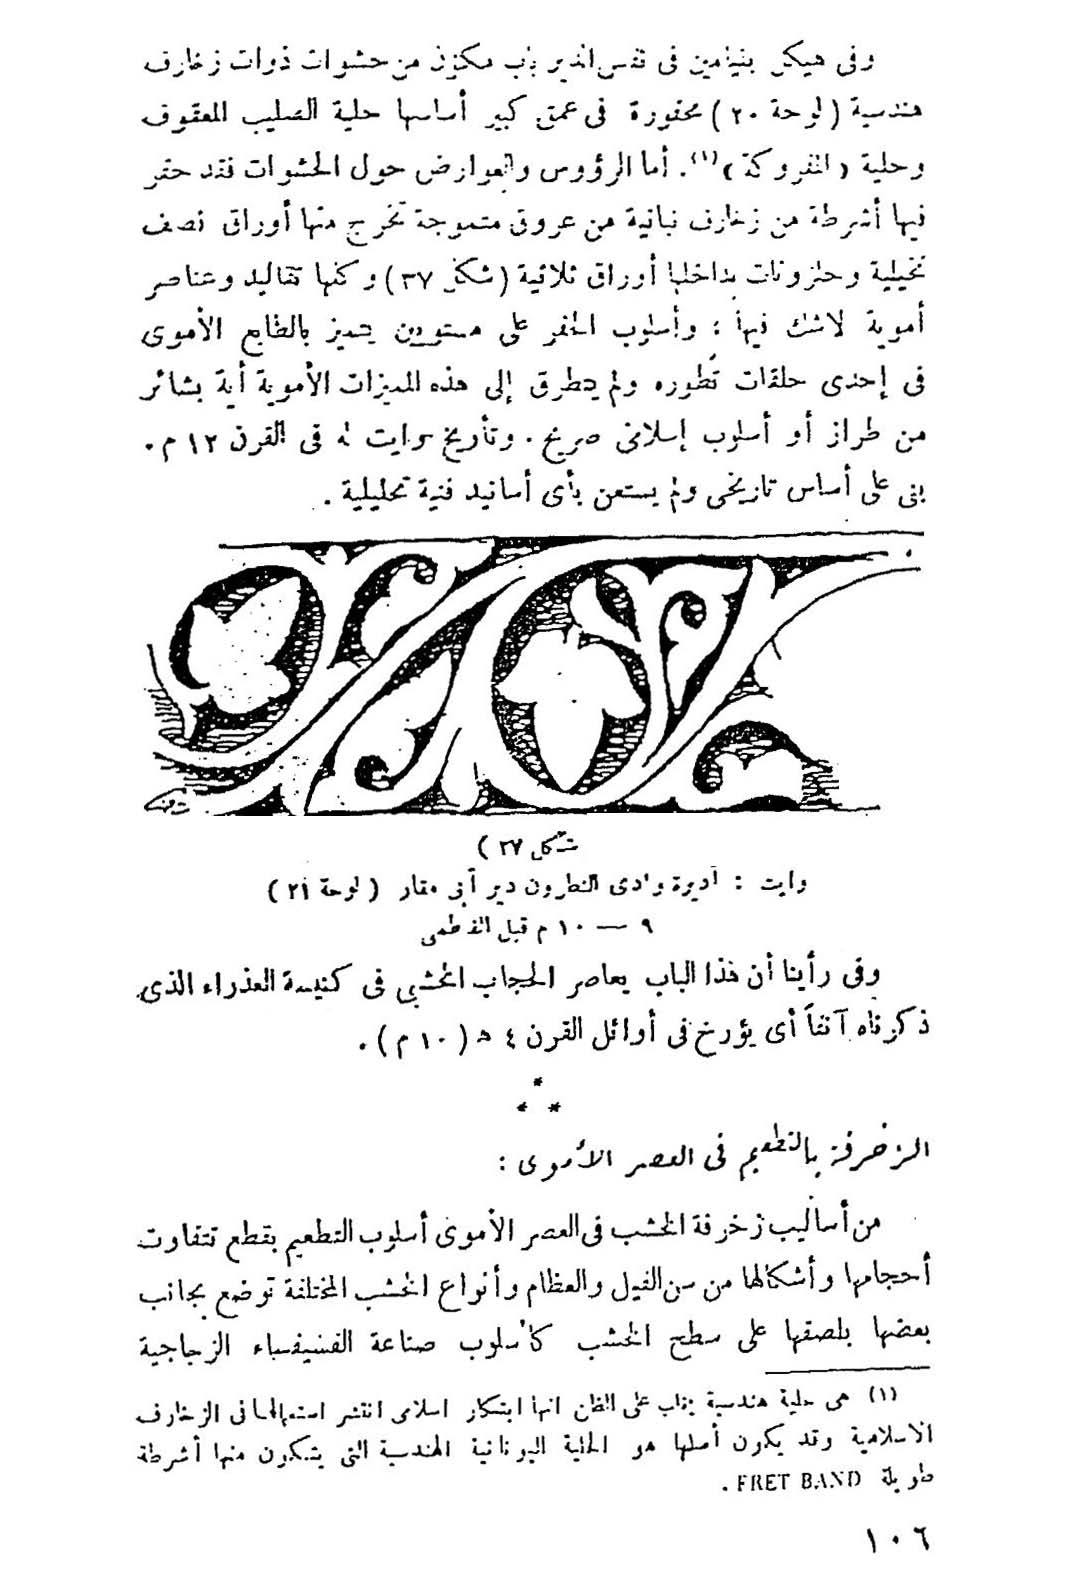 وفى هيكل بنيامين فى نفس الدير باب مكون من حشوات ذوات زخارف
هندسية (لوحة ٢٠) محفورة فى عمق كبير أساسها حلية الصليب المعقوف
وحلية «المفروكة»(١). أما الرؤوس والعوارض حول الحشوات فقد حفر
فيها أشرطة من زخارف نباتية من عروق متموجة تخرج منها أوراق نصف
نخيلية وحلزونات بداخلها أوراق ثلاثية (شكل ٣٧) وكلها تقاليد وعناصر
أموية لاشك فيها ؛ وأسلوب الحفر على مستويين يتميز بالطابع الأموى
فى إحدى حلقات تطوره ولم يتطرق إلى هذه المميزات الأموية أية بشائر
من طراز أو أسلوب إسلامى صريح . وتأريخ وايت له فى القرن ١٢ م .
بنى على أساس تاريخى ولم يستعن بأى أسانيد فنية تحليلية .
شكل ٣٧ )
وايت : أديرة وادى النطرون دير أبى مقار ( لوحة ٢١ )
٩ — ١٠ م قبل الفاطمى
وفى رأينا أن هذا الباب يعاصر الحجاب الخشبى فى كنيسة العذراء الذى
ذكرناه آنفاً أى يؤرخ فى أوائل القرن ٤ هـ (١٠ م) .
*
* *
الزخرفة بالتطعيم فى العصر الأموى :
من أساليب زخرفة الخشب فى العصر الأموى أسلوب التطعيم بقطع تتفاوت
أحجامها وأشكالها من سن الفيل والعظام وأنواع الخشب المختلفة توضع بجانب
بعضها بلصقها على سطح الخشب كأسلوب صناعة الفسيفساء الزجاجية
(١) هى حلية هندسية يغلب على الظن انها ابتكار اسلامى انتشر استعمالها فى الزخارف
الاسلامية وقد يكون أصلها هو الحلية اليونانية الهندسية التى يتكون منها أشرطة
طويلة FRET BAND .
١٠٦